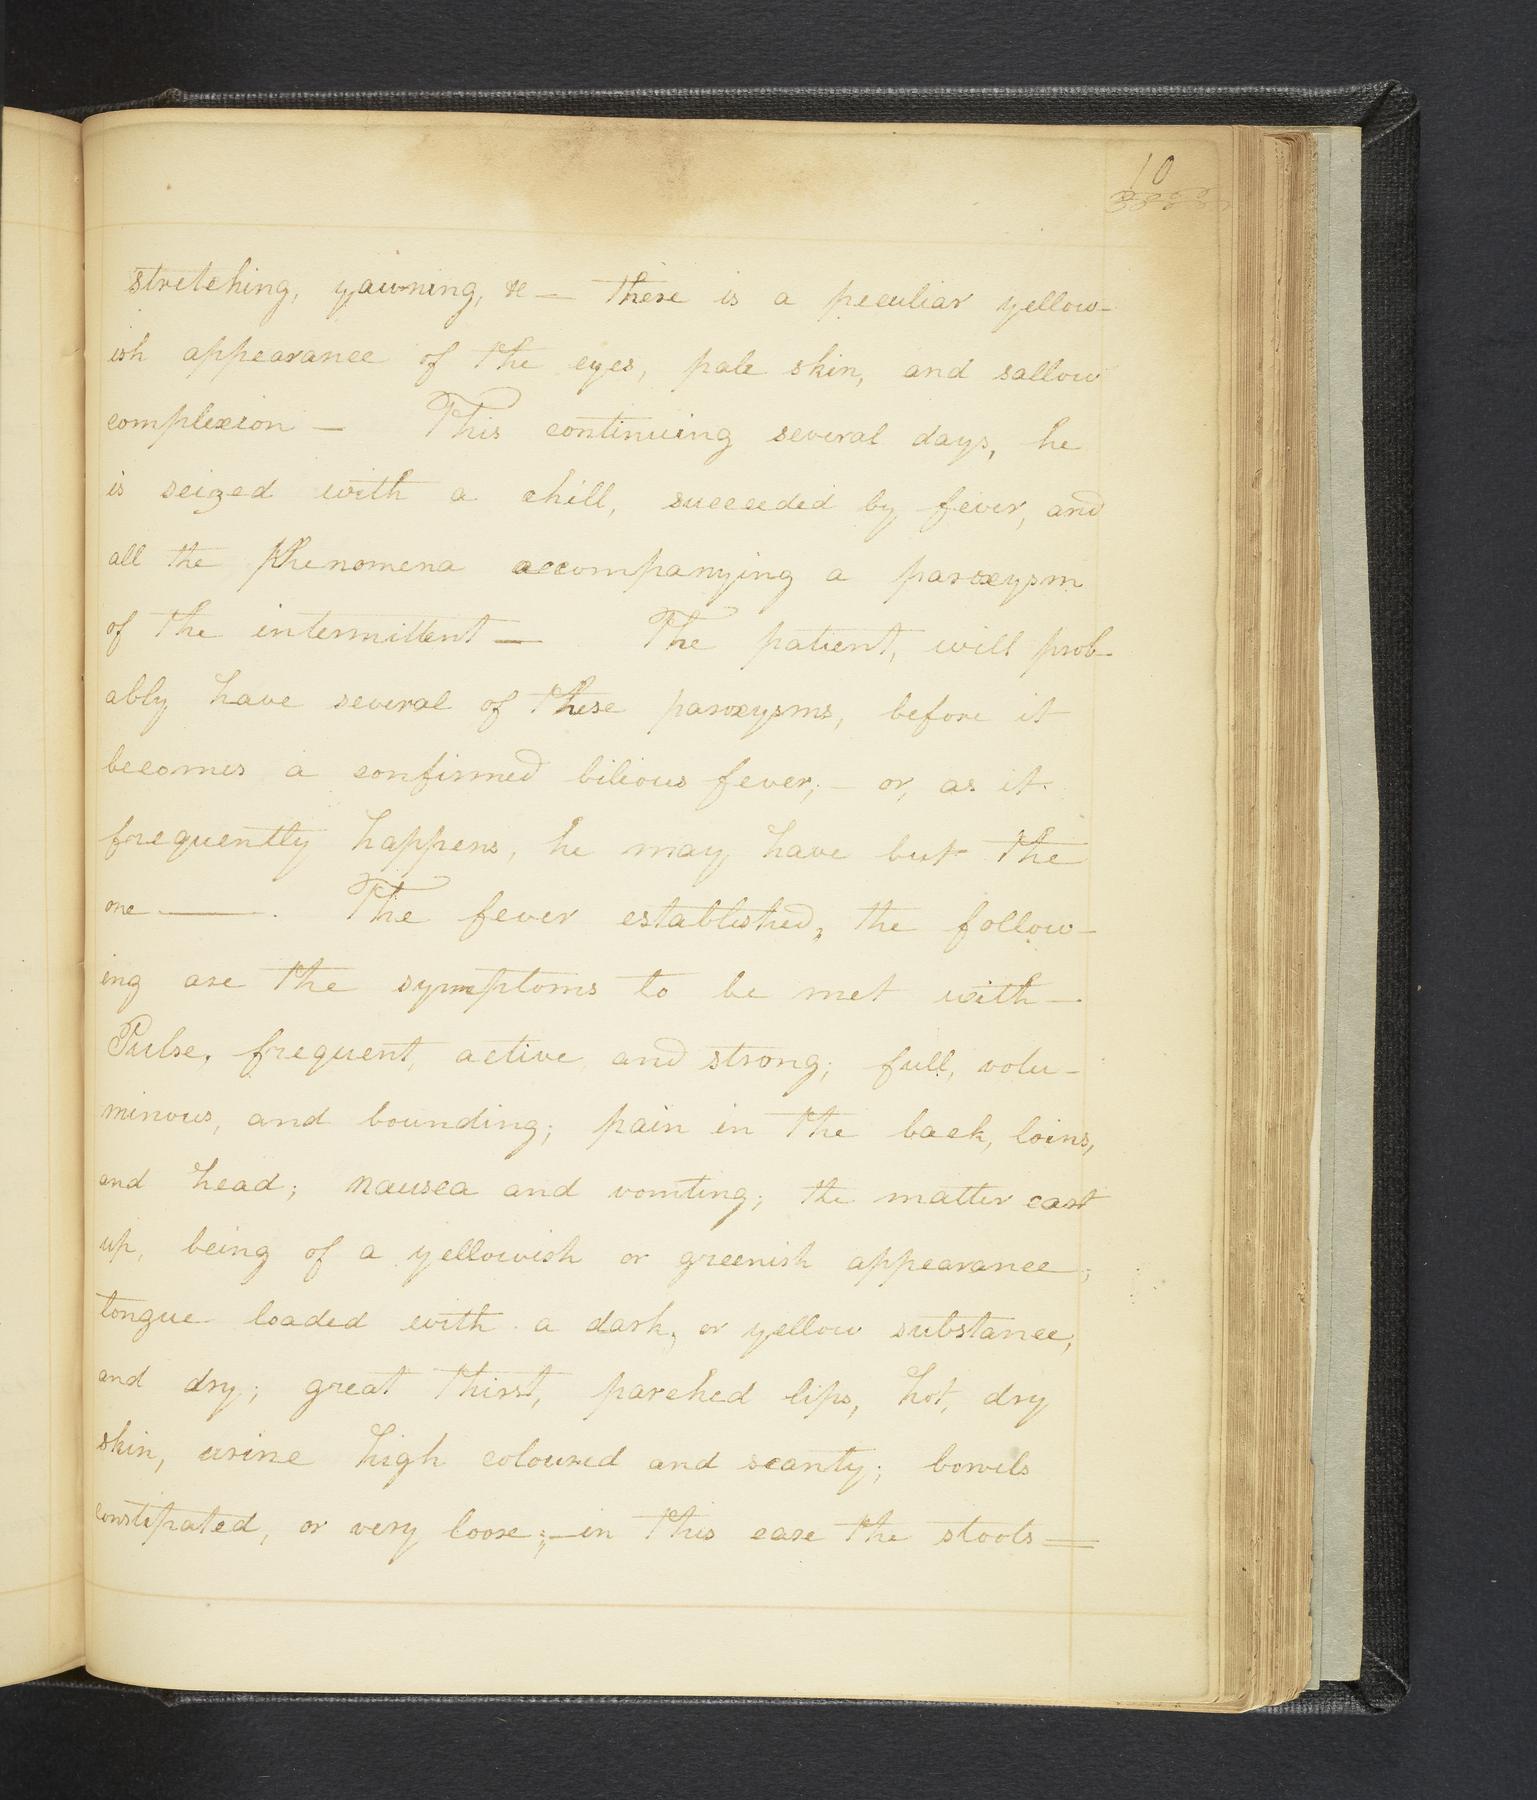 10
stretching, yawning, &c — there is a peculiar yellow-
ish appearance of the eyes, pale skin, and sallow
complexion — This continuing several days, he
is seized with a chill, succeeded by fever, and
all the phenomena accompanying a paroxysm
of the intermittent — The patient, will prob-
ably have several of these paroxysms, before it
becomes a confirmed bilious fever; - or, as it
frequently happens, he may have but the
one ——. The fever established, the follow-
ing are the symptoms to be met with —
Pulse, frequent, active and strong; full, volu-
minous, and bounding; pain in the back, loins,
and head; nausea and vomting; the matter cast
up, being of a yellowish or greenish appearance;
tongue loaded with a dark, or yellow substance,
and dry; great thirst, parched lips, hot, dry
skin, urine high coloured and scanty; bowels
constipated, or very loose; — in this case the stools =